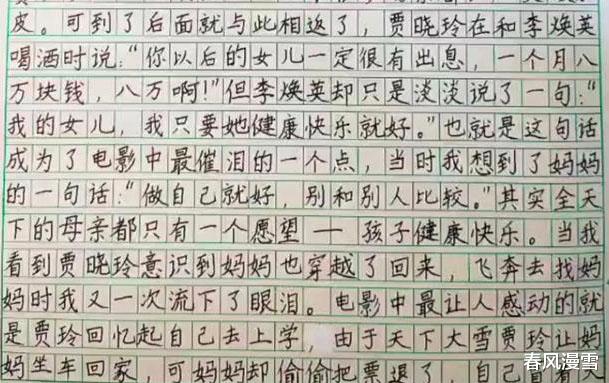 皮。可到了后面就与此相返了，贾晓玲在和李焕英
喝酒时说：“你以后的女儿一定很有出息，一个月八
万块钱，八万啊！”但李焕英却只是淡淡说了一句：“
我的女儿，我只要她健康快乐就好。”也就是这句话
成为了电影中最催泪的一个点，当时我想到了妈妈
的一句话：“做自己就好，别和别人比较。”其实全天
下的母亲都只有一个愿望—孩子健康快乐。当我
看到贾晓玲意识到妈妈也穿越了回来，飞奔去找妈
妈时我又一次流下了眼泪。电影中最让人感动的就
是贾玲回忆起自己去上学，由于天下大雪贾玲让妈
妈坐车回家，可妈妈却偷偷把票退了，自己
春风漫雪